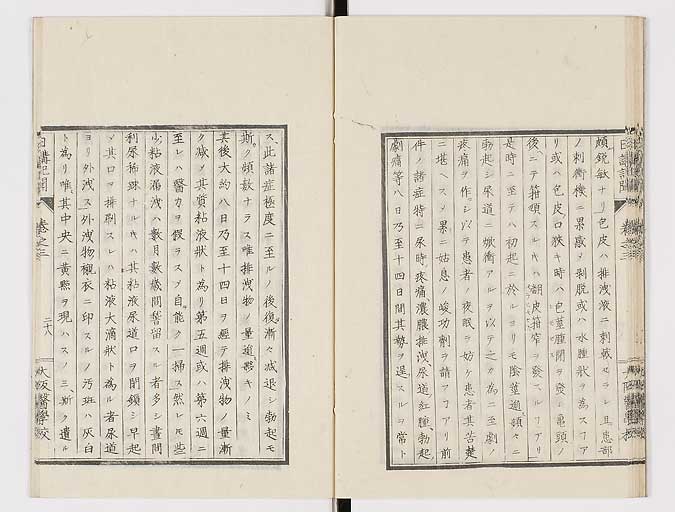 頗鋭敏ナリ包皮ハ排洩液ニ刺戟セラレ且患部
ノ刺衝機ニ累感メ剥脱或ハ水腫狀ヲ為スフアリ
リ或ハ包皮口狹キ時ハ包莖腫閉ヲ發シ亀頭ノ
後ニテ箝頓スルキハ胡皮箝窄ヲ發スルフアリ
是時ニ至テハ初起ニ於レヨリモ陰莖頻々ニ
勃起シ尿道ニ掀衝アルヲ以テ之カ為ニ至劇ノ
疼痛ヲ作シ以テ患者ノ夜眠ヲ妨ケ患者其苦楚
ニ堪ヘスメ果ニ姑息ノ峻功劑ヲ請フフアリ前
件ノ諸症特ニ尿時疼痛濃膿排洩尿道紅腫勃起
劇痛等八日乃至十四日間其勢ヲ逞スルヲ常ト
ス此諸症極度ニ至ルノ後復漸々減退シ勃起モ
斯ク頻數ナラス唯排洩物ノ量追々影キノミ
其後大約八日乃至十四日ヲ經テ排洩物ノ量漸
ク減メ其質粘液狀ト為リ第五週或ハ第六週ニ
至レハ醫力ヲ假ラスメ自能ク一掃ス然レモ些
少粘液漏洩ハ數月數歳間稽留スル者多シ晝間
利尿稀踈ナルキハ其粘液尿道口ヲ閉鎖シ早起
メ其口ヲ排剔スレハ粘液大滴狀ト為ル者尿道
ヨリ外洩ス外洩物襯衣ニ印スルノ汚斑ハ灰白
ト為リ唯其中央ニ黄點ヲ現ハスノミ斯ク遺ル
日講記聞
卷之三
二十八
大阪醫學校